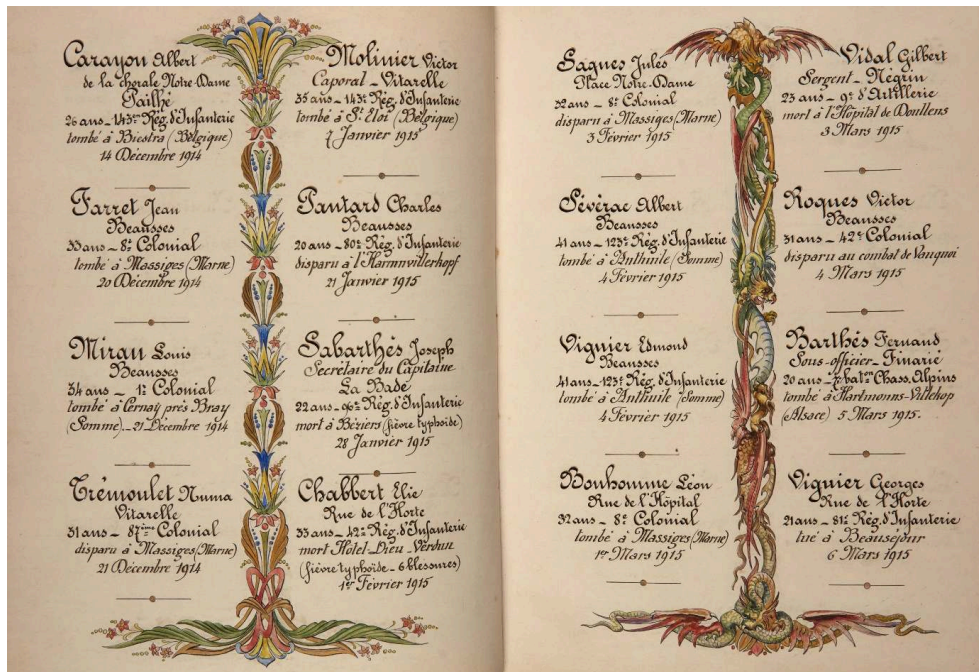 Carayon Albert
de la chorale Notre-Dame
Pailhé
26 ans _ 143me Rég. d'Infanterie
tombé à Biestra (Belgique)
14 Décembre 1914
Farret Jean
Beausses
33 ans _ 8e Colonial
tombé à Massiges (Marne)
20 Décembre 1914
Miran Louis
Beausses
34 ans _ 1e Colonial
tombé à Cernay près Bray
(Somme) _ 21 Décembre 1914
Trémoulet Numa
Vitarelle
31 ans _ 87ème Colonial
disparu à Massiges (Marne)
21 Décembre 1914
Molinier Victor
Caporal _ Vitarelle
35 ans _ 143e Rég. d'Infanterie
tombé à St Eloi (Belgique)
7 Janvier 1915
Pantard Charles
Beausses
20 ans _ 80e Rég. d'Infanterie
disparu à l'Harmnvillerkopf
21 Janvier 1915
Sabarthès Joseph
Secrétaire du Capitaine
La Bade
22 ans _ 96e Rég. d'Infanterie
mort à Béziers (fièvre typhoïde)
28 Janvier 1915
Chabbert Elie
Rue de l'Horte
33 ans _ 42e Rég. d'Infanterie
mort Hôtel-Dieu _ Verdun
(fièvre typhoïde _ 6 blessures)
1er Février 1915
Sagnes Jules
Place Notre-Dame
32 ans _ 8e Colonial
disparu à Massiges (Marne)
3 Février 1915
Sévérac Albert
Beausses
41 ans _ 123e Rég. d'Infanterie
tombé à Anthuile (Somme)
4 Février 1915
Viguier Edmond
Beausses
41 ans _ 123e Rég. d'Infanterie
tombé à Anthuile (Somme)
4 Février 1915
Bonhomme Léon
Rue de l'Hôpital
32 ans _ 8e Colonial
tombé à Massiges (Marne)
1er Mars 1915
Vidal Gilbert
Sergent _ Négrin
23 ans _ 9e d'Artillerie
mort à l'Hôpital de Doullens
3 Mars 1915
Roques Victor
Beausses
31 ans _ 42e Colonial
disparu au combat de Vauquoi
4 Mars 1915
Barthés Fernand
Sous-officier _ Finarié
20 ans _ baton Chass. Alpins
tombé à Hartmonns-Villekop
(Alsace) 5 Mars 1915.
Viguier Georges
Rue de l'Horte
21 ans _ 81e Rég. d'Infanterie
tué à Beauséjour
6 Mars 1915